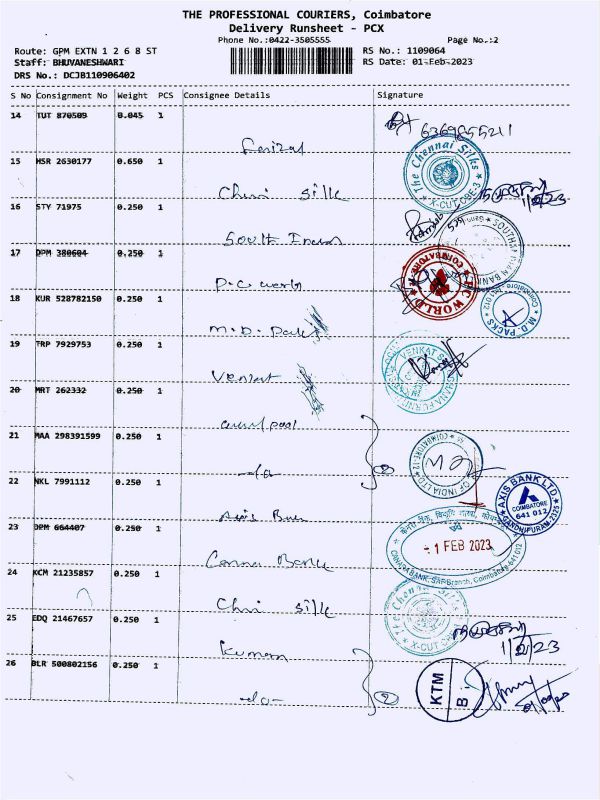 THE PROFESSIONAL COURIERS, Coimbatore
Delivery Runsheet - PCX
Phone No.:0422-3505555
Page No.:2
Route: GPM EXTN 1 2 6 8 ST
RS No.: 1109064
Staff: BHUVANESHWARI
RS Date: 01-Feb-2023
DRS No.: DCJB110906402
S No Consignment No Weight PCS Consignee Details Signature
14 TUT 870509 0.045 1
6369855211
15 HSR 2630177 0.650 1
The Chennai Silks
X-CUT, CBE-3
1/2/23
16 STY 71975 0.250 1
South Indian
17 DPM 380604 0.250 1
P.C. World
PC WORLD
COIMBATORE
18 KUR 528782150 0.250 1
M.D. Packs
M.D. PACKS
Coimbatore
19 TRP 7929753 0.250 1
Venkat
20 MRT 262332 0.250 1
21 MAA 298391599 0.250 1
-do-
2
OF INDIA LTD
COIMBATORE-12
22 NKL 7991112 0.250 1
Axis Bank
AXIS BANK LTD
COIMBATORE
641 012
GANDHIPURAM
23 DPM 664407 0.250 1
Canara Bank
- 1 FEB 2023
CANARA BANK, Branch, Coimbatore-641 012
24 KCM 21235857 0.250 1
silk
The Chennai Silks
X-CUT
25 EDQ 21467657 0.250 1
Kumar
1/2/23
26 BLR 500802156 0.250 1
-do-
2
KTM
B